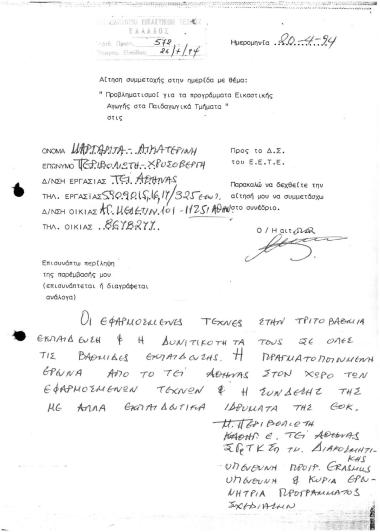 ΕΠΙΜΕΛΗΤΗΡΙΟ ΕΙΚΑΣΤΙΚΩΝ ΤΕΧΝΩΝ
ΕΛΛΑΔΟΣ
Αριθ. Πρωτ. 572
26/4/94
Ημερομηνία 20-4-94
Αίτηση συμμετοχής στην ημερίδα με θέμα:
" Προβληματισμοί για τα προγράμματα Εικαστικής
Αγωγής στα Παιδαγωγικά Τμήματα "
στις
ΟΝΟΜΑ ΜΑΡΓΑΡΙΤΑ - ΑΙΚΑΤΕΡΙΝΗ
ΕΠΩΝΥΜΟ ΠΕΡΙΒΟΛΙΩΤΗ - ΧΡΥΣΟΒΕΡΓΗ
Δ/ΝΣΗ ΕΡΓΑΣΙΑΣ ΤΕΙ ΑΘΗΝΑΣ
ΤΗΛ. ΕΡΓΑΣΙΑΣ 5909215,16,17/325 εσωτ.
Δ/ΝΣΗ ΟΙΚΙΑΣ ΑΓ. ΜΕΛΕΤΙΟΥ 101 - 11251 ΑΘΗΝΑ
ΤΗΛ. ΟΙΚΙΑΣ
Προς το Δ.Σ.
του Ε.Ε.Τ.Ε.
Παρακαλώ να δεχθείτε την
αίτησή μου να συμμετάσχω
στο συνέδριο.
Ο / Η αιτ
Επισυνάπτω περίληψη
της παρέμβασής μου
(επισυνάπτεται ή διαγράφεται
ανάλογα)
ΟΙ ΕΦΑΡΜΟΣΜΕΝΕΣ ΤΕΧΝΕΣ ΣΤΗΝ ΤΡΙΤΟΒΑΘΜΙΑ
ΕΚΠΑΙΔΕΥΣΗ & Η ΔΥΝΙΤΙΚΟΤΗΤΑ ΤΟΥΣ ΣΕ ΟΛΕΣ
ΤΙΣ ΒΑΘΜΙΔΕΣ ΕΚΠΑΙΔΕΥΣΗΣ. Η ΠΡΑΓΜΑΤΟΠΟΙΟΥΜΕΝΗ
ΕΡΕΥΝΑ ΑΠΟ ΤΟ ΤΕΙ ΑΘΗΝΑΣ ΣΤΟΝ ΧΩΡΟ ΤΩΝ
ΕΦΑΡΜΟΣΜΕΝΩΝ ΤΕΧΝΩΝ & Η ΣΥΝΔΕΣΗ ΤΗΣ
ΜΕ ΑΛΛΑ ΕΚΠΑΙΔΕΥΤΙΚΑ ΙΔΡΥΜΑΤΑ ΤΗΣ ΕΟΚ.
Μ. ΠΕΡΙΒΟΛΙΩΤΗ
ΚΑΘΗΓ. ΤΕΙ ΑΘΗΝΑΣ
ΔΙΑΚΟΣΜΗΤΙΚΗΣ
ΥΠΕΥΘΥΝΗ ΠΡΟΓΡ. ERASMUS
ΥΠΕΥΘΥΝΗ & ΚΥΡΙΑ ΕΡΕΥ-
ΝΗΤΡΙΑ ΠΡΟΓΡΑΜΜΑΤΟΣ
ΣΧΕΔΙΑΣΜΩΝ